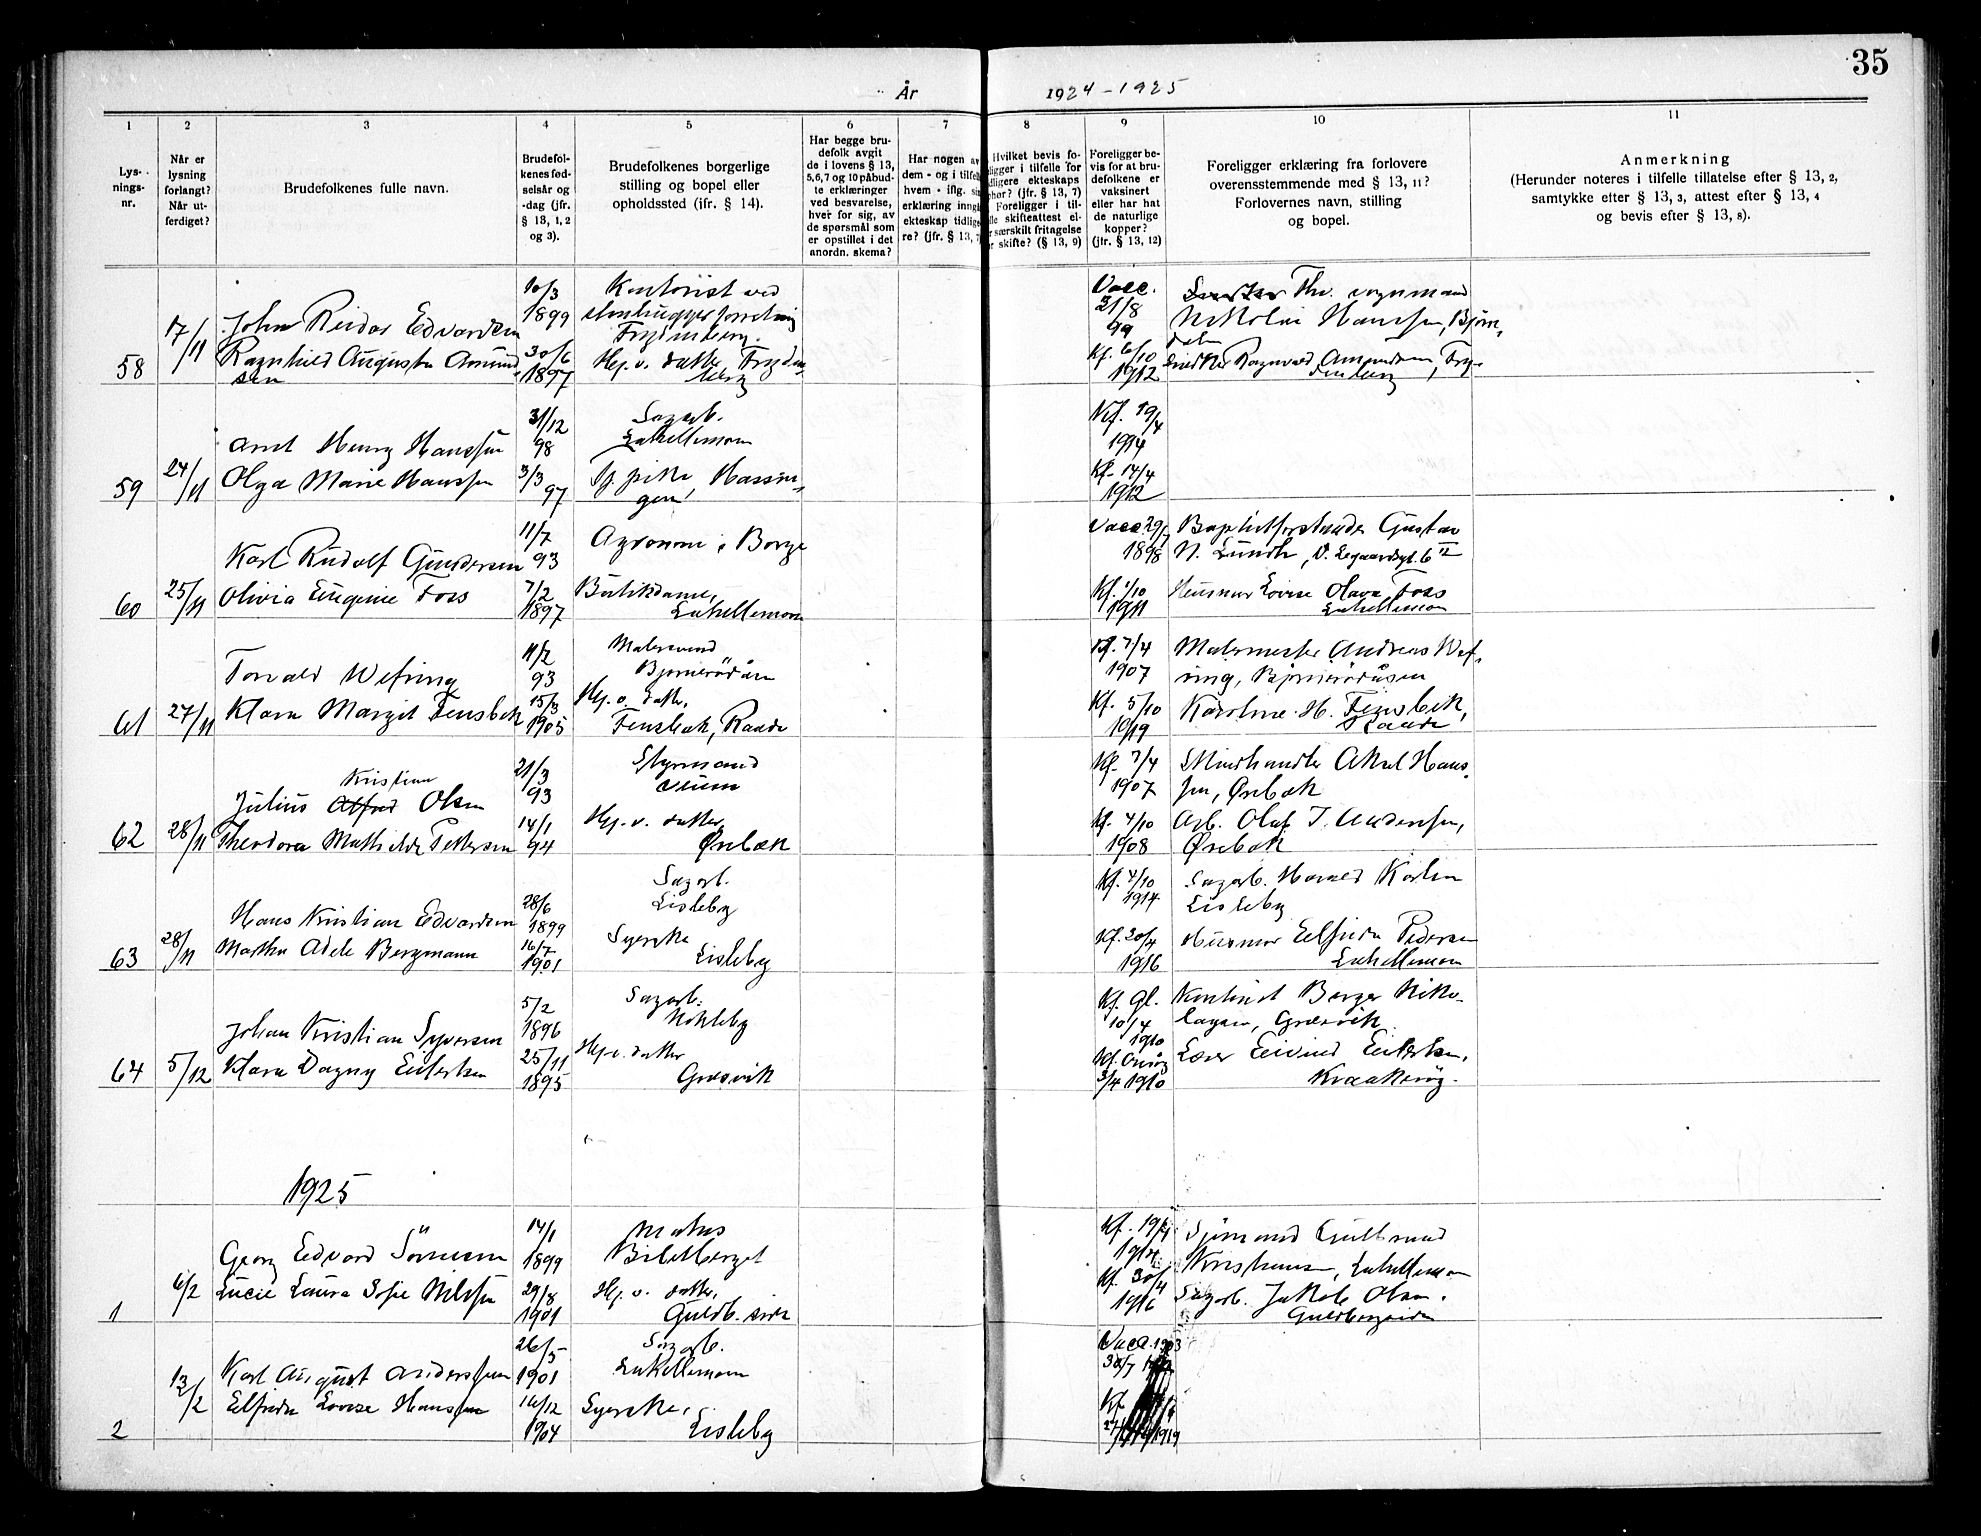 35
År 1924-1925
1
2
3
4
5
6
7
8
9
10
11
Lys-
nings-
nr.
Når er
lysning
forlangt?
Når ut-
ferdiget?
Brudefolkenes fulle navn.
Brudefol-
kenes fød-
selsår og
-dag (jfr.
§ 13, 1, 2
og 3).
Brudefolkenes borgerlige
stilling og bopel eller
opholdssted (jfr. § 14).
Har begge bru-
defolk avgit
de i lovens § 13,
5,6,7 og 10 påbud-
te erklæringer
ved besvarelse,
hver for sig, av
de spørsmål som
er opstillet i det
anordn. skema?
Har nogen av
dem - og i tilfelle
hvem - iflg. sin
erklæring inngått
ekteskap tidlige-
re? (jfr. § 13, 7
Hvilket bevis fo-
ligger i tilfelle for
tidligere ekteskaps
ophør? (jfr. § 13, 7)
Foreligger i til-
felle skifteattest el-
særskilt fritagelse
skifte? (§ 13, 9)
Foreligger be-
vis for at bru-
defolkene er
vaksinert
eller har hat
de naturlige
kopper?
(jfr. § 13, 12)
Foreligger erklæring fra forlovere
overensstemmende med § 13, 11?
Forlovernes navn, stilling
og bopel.
Anmerkning
(Herunder noteres i tilfelle tillatelse efter § 13, 2,
samtykke efter § 13, 3, attest efter § 13, 4
og bevis efter § 13, 8).
58 17/11
John Reidar Edvardsen 10/3 1899 Kontorist ved
stenhuggerforretning
Vacc. 31/8 99
Thv. vognmand
Nikolai Hanssen, Bjørn-
dalen
Ragnhild Augusta Amund-
sen 30/6 1897 Hj.v. datter
Kf. 6/10 1912 Ragnvald Amundsen
59 24/11
Arnt Henry Hanssen 31/12 98 Sagarb.
Lahellemoen
Kf. 19/4 1914
Olga Marie Hanssen 3/3 97 Tj. pike, Hassin-
gen
Kf. 14/4 1912
60 25/11
Karl Rudolf Gundersen 11/7 93 Agronom i Borge
Vacc. 29/7 1898 Baptistforstander Gustav
N. Lundh
Olivia Eugenie Foss 7/2 1897 Butikdame,
Lahellemoen
Kf. 1/10 1911 Husmor Lovise Olava Foss
Lahellemoen
61 27/11
Torvald Wefring 11/2 93 Malersvend
Bjørnerødåsen
Kf. 7/4 1907 Malermester Andreas Wef-
ring, Bjørnerødåsen
Klara Margit Fensbek 15/3 1905 Hj. v. datter,
Fensbek, Raade
Kf. 5/10 1919 Karoline H. Fensbek,
Raade
62 28/11
Kristian
Julius Alfred Olsen 21/3 93 Styrmand
Vium
Kf. 7/4 1907 Aksel Hans-
sen, Ørebæk
Theodora Mathilde Pettersen 14/1 94 Hj. v. datter,
Ørebæk
Kf. 4/10 1908 Arb. Olaf T. Anderssen,
Ørebæk
63 28/11
Hans Kristian Edvardsen 28/6 1899 Sagarb.
Lisleby
Kf. 4/10 1914 Sagarb. Harald Karlsen
Lisleby
Martha Adele Bergmann 16/7 1901 Syerske
Lisleby
Kf. 30/4 1916 Husmor Elfrida Pedersen
Lahellemoen
64 5/12
Johan Kristian Syversen 5/2 1896 Sagarb.
Nokleby
Kf. Gl. 10/4 1910 Kontorist Borger Niko-
laysen, Græsvik
Klara Dagny Eilertsen 25/11 1895 Hj.v. datter
Græsvik
Kf. Onsøy 3/4 1910 Læser Eivind Eilertsen,
Kraakerøy.
1925
1 6/2
Georg Edvard Sörensen 14/1 1899 Matros
Bilettberget
Kf. 19/4 1914 Sjømand Gullmand
Kristiansen, Lahellemoen
Lucie Laura Sofie Nilsen 29/8 1901 Hj. v. datter,
Guldb. siden
Kf. 30/4 1916 Sagarb. Jakob Olsen.
Guldbergsiden
2 13/2
Karl August Anderssen 26/5 1901 Sagarb.
Lahellemoen
Vacc. 1903
Elfrida Lovise Hanssen 16/12 1904 Syerske,
Lisleby
Kf.
1919